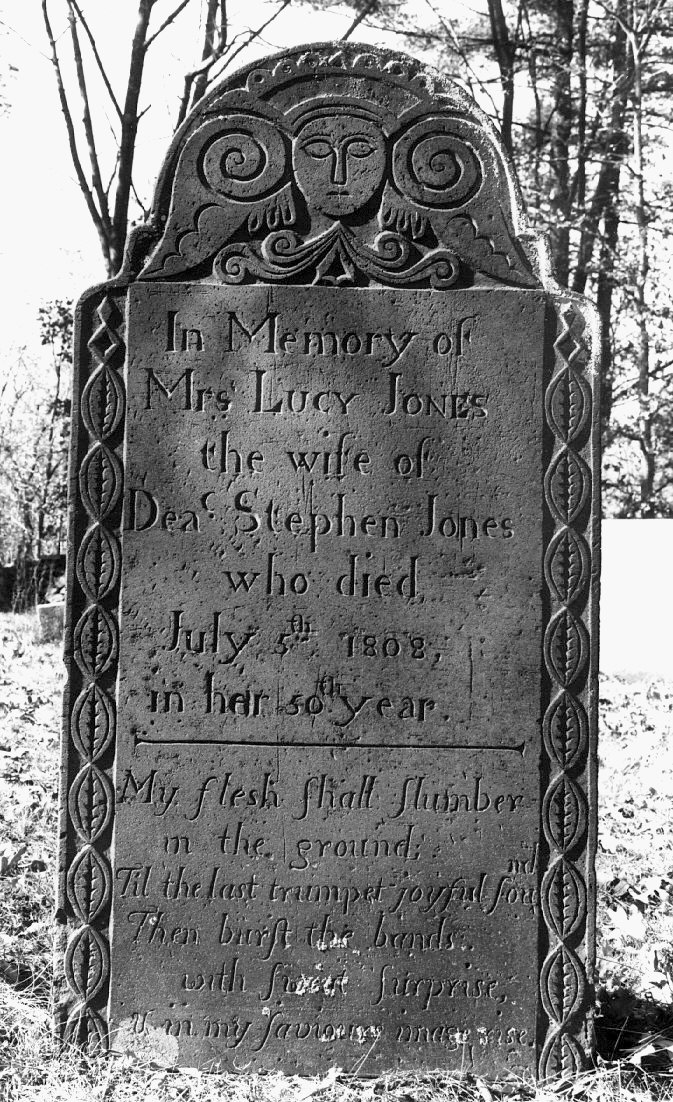 In Memory of
Mrs LUCY JONES
the wife of
Deaᶜ Stephen Jones
who died
July 5th 1808,
in her 50th year.
My flesh ſhall ſlumber
in the ground;
Til the last trumpet joyful ſound
Then burſt the bands
with ſweet ſurprise,
& in my ſaviours image rise.